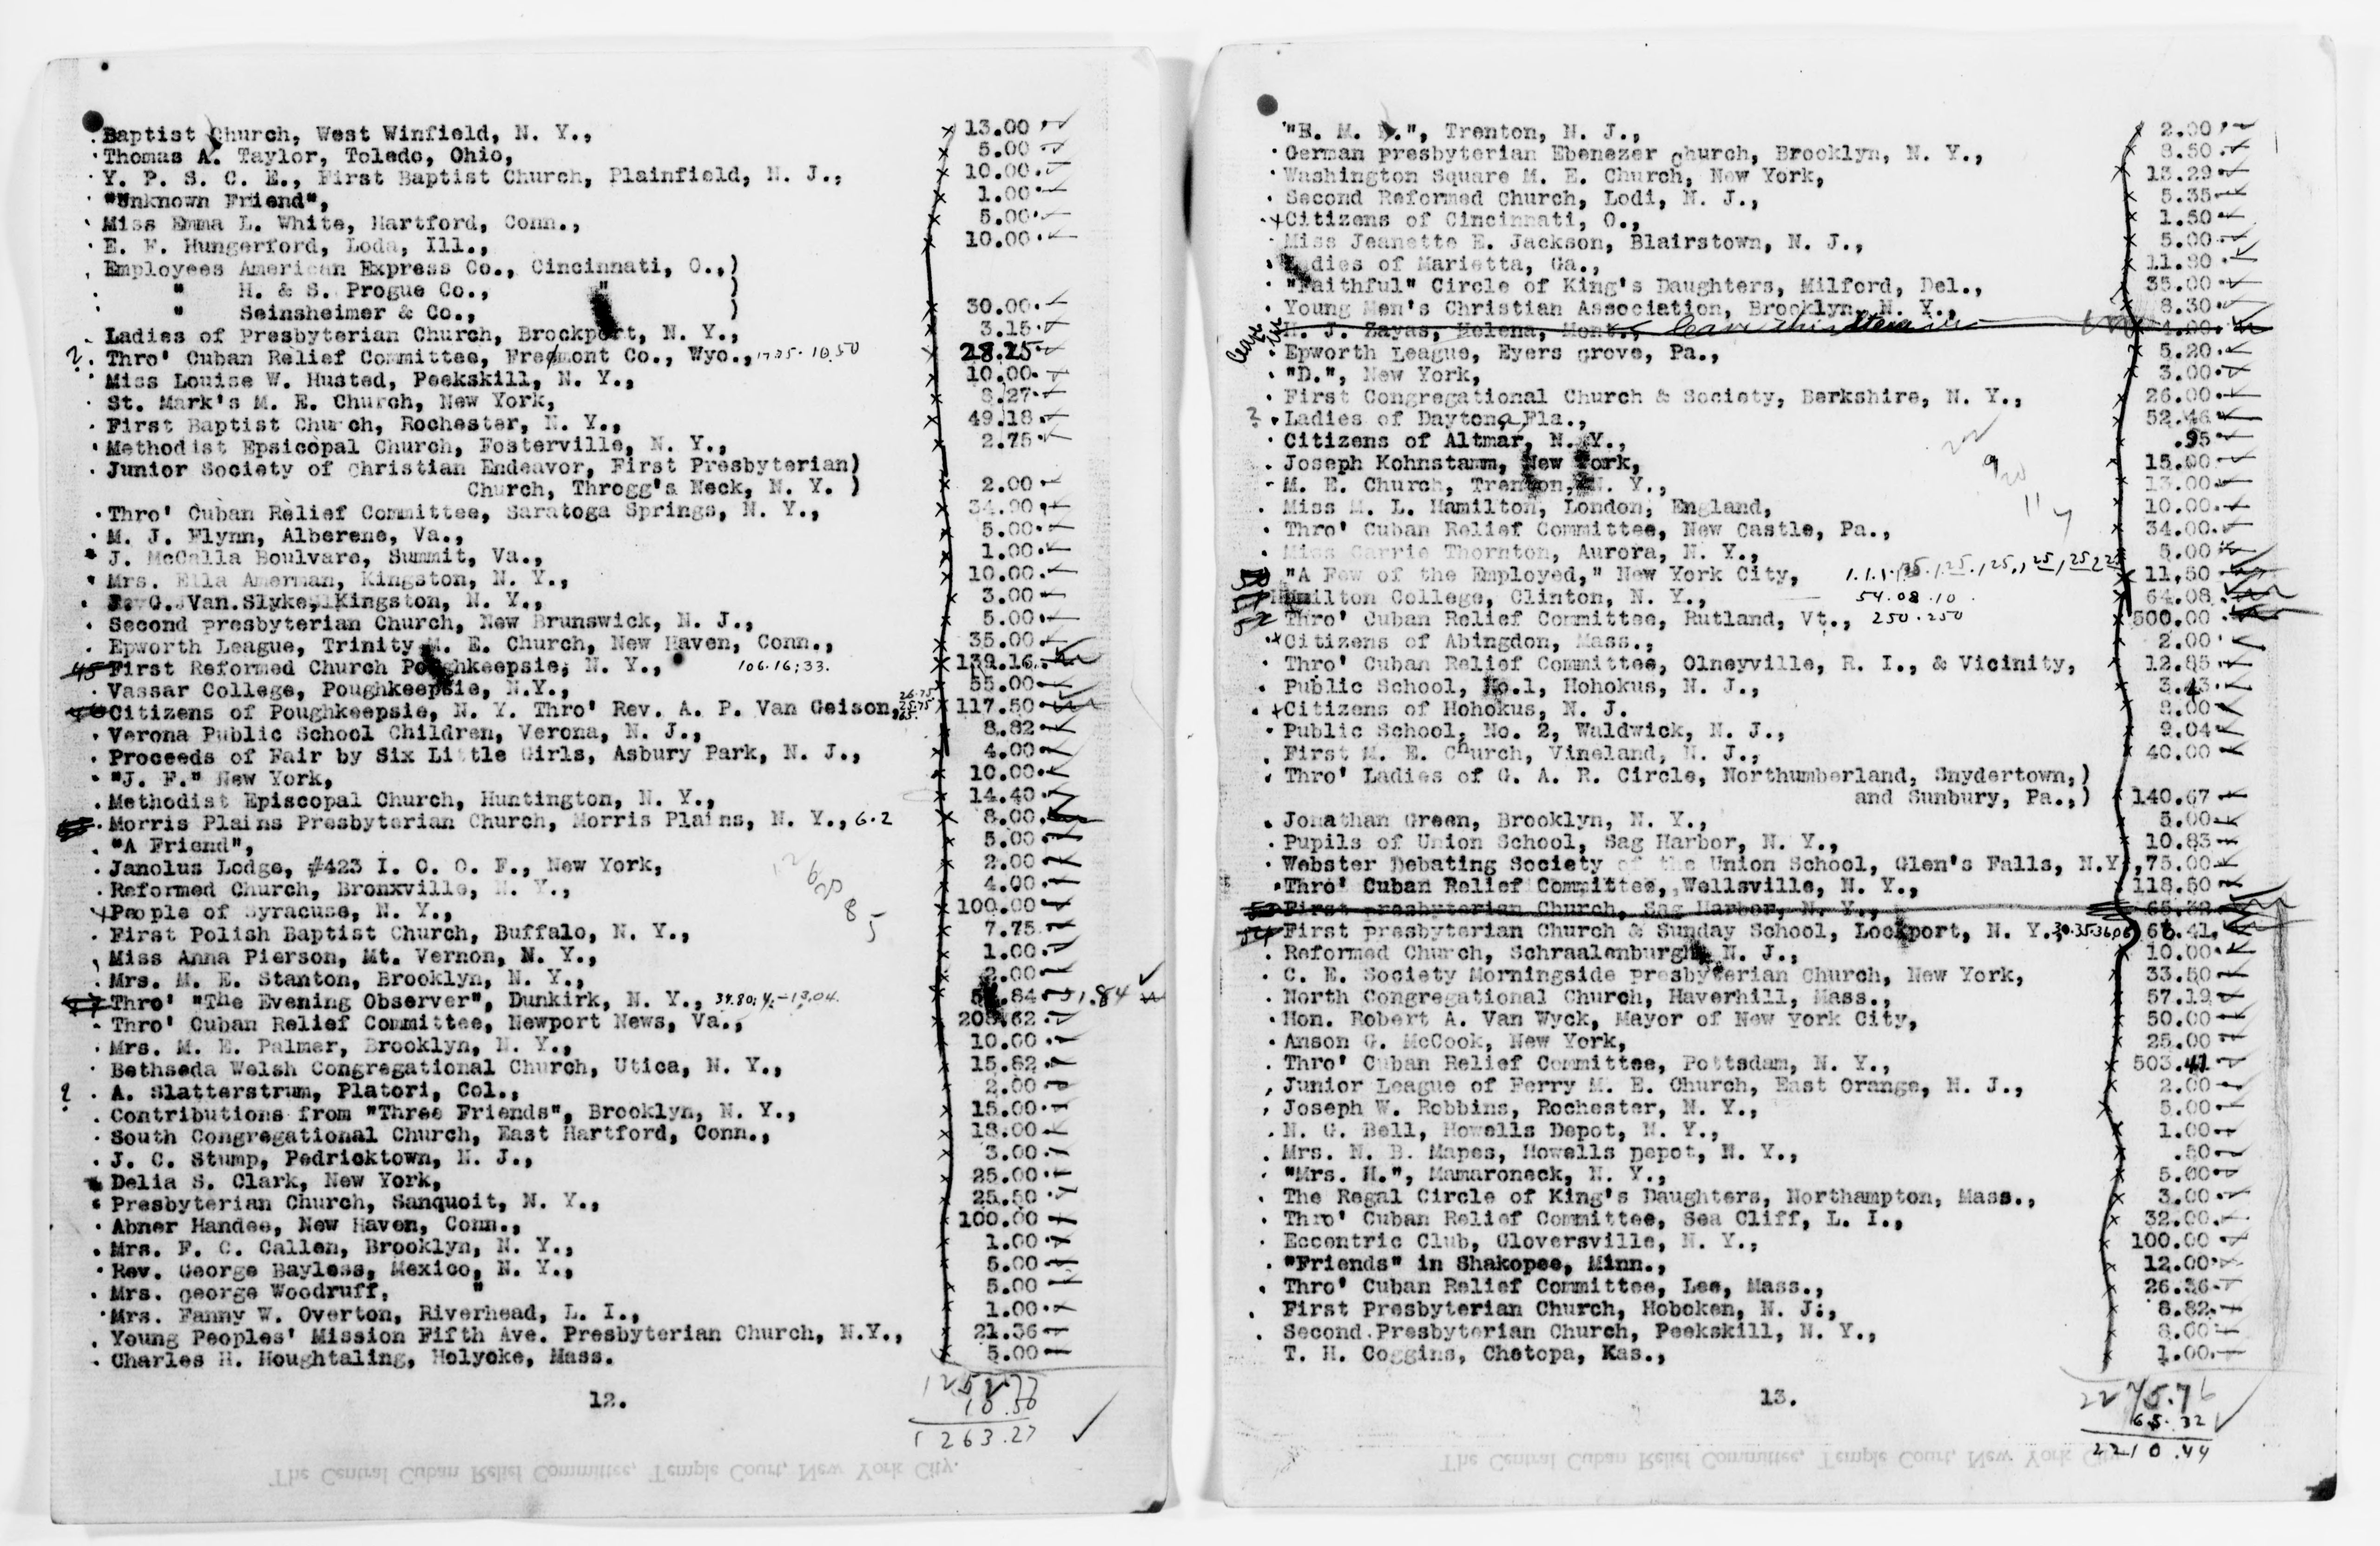 Baptist Church, West Winfield, N. Y., x 13.00
Thomas A. Taylor, Toledo, Ohio, x 5.00
Y. P. S. C. E., First Baptist Church, Plainfield, N. J., x 10.00
"Unknown Friend", x 1.00
Miss Emma L. White, Hartford, Conn., x 5.00
E. F. Hungerford, Loda, Ill., x 10.00
Employees American Express Co., Cincinnati, O.,)
" H. & S. Progue Co., " )
" Seinsheimer & Co., ) x 30.00
Ladies of Presbyterian Church, Brockport, N. Y., x 3.15
? Thro' Cuban Relief Committee, Fremont Co., Wyo., 28.25
Miss Louise W. Husted, Peekskill, N. Y., x 10.00
St. Mark's M. E. Church, New York, x 8.27
First Baptist Church, Rochester, N. Y., x 49.18
Methodist Epsicopal Church, Fosterville, N. Y., x 2.75
Junior Society of Christian Endeavor, First Presbyterian)
Church, Throgg's Neck, N. Y. ) x 2.00
Thro' Cuban Relief Committee, Saratoga Springs, N. Y., x 34.90
M. J. Flynn, Alberene, Va., x 5.00
J. McCalla Boulvare, Summit, Va., x 1.00
Mrs. Ella Amerman, Kingston, N. Y., x 10.00
J. G. Van Slyke, Kingston, N. Y., x 3.00
Second presbyterian Church, New Brunswick, N. J., x 5.00
Epworth League, Trinity M. E. Church, New Haven, Conn., x 35.00
45 First Reformed Church Poughkeepsie, N. Y., 106.16; 33. x 139.16
Vassar College, Poughkeepsie, N.Y., x 55.00
Citizens of Poughkeepsie, N. Y. Thro' Rev. A. P. Van Geison, x 117.50
Verona Public School Children, Verona, N. J., x 8.82
Proceeds of Fair by Six Little Girls, Asbury Park, N. J., x 4.00
"J. F." New York, x 10.00
Methodist Episcopal Church, Huntington, N. Y., x 14.40
Morris Plains Presbyterian Church, Morris Plains, N. Y., 6.2 x 8.00
"A Friend", x 5.00
Janolus Lodge, #423 I. O. O. F., New York, x 2.00
Reformed Church, Bronxville, N. Y., x 4.00
People of Syracuse, N. Y., x 100.00
First Polish Baptist Church, Buffalo, N. Y., x 7.75
Miss Anna Pierson, Mt. Vernon, N. Y., x 1.00
Mrs. M. E. Stanton, Brooklyn, N. Y., x 2.00
Thro' "The Evening Observer", Dunkirk, N. Y., 34.80; 4. - 13.04. x
Thro' Cuban Relief Committee, Newport News, Va., x
Mrs. M. E. Palmer, Brooklyn, N. Y., x 10.00
Bethseda Welsh Congregational Church, Utica, N. Y., x 15.82
? A. Slatterstrum, Platori, Col., x 2.00
Contributions from "Three Friends", Brooklyn, N. Y., x 15.00
South Congregational Church, East Hartford, Conn., x 18.00
J. C. Stump, Pedricktown, N. J., x 3.00
Delia S. Clark, New York, x 25.00
Presbyterian Church, Sanquoit, N. Y., x 25.50
Abner Handee, New Haven, Conn., x 100.00
Mrs. F. C. Callen, Brooklyn, N. Y., x 1.00
Rev. George Bayless, Mexico, N. Y., x 5.00
Mrs. george Woodruff, " x 5.00
Mrs. Fanny W. Overton, Riverhead, L. I., x 1.00
Young Peoples' Mission Fifth Ave. Presbyterian Church, N.Y., x 21.36
Charles H. Houghtaling, Holyoke, Mass. x 5.00
12.
1263.27
The Central Cuban Relief Committee, Temple Court, New York City.
Trenton, N. J., x 2.00
German presbyterian Ebenezer Church, Brooklyn, N. Y., x 8.50
Washington Square M. E. Church, New York, x 13.29
Second Reformed Church, Lodi, N. J., x 5.35
Citizens of Cincinnati, O., x 1.50
Miss Jeanette E. Jackson, Blairstown, N. J., x 5.00
Ladies of Marietta, Ga., x 11.80
"Faithful" Circle of King's Daughters, Milford, Del., x 35.00
Young Men's Christian Association, Brooklyn, N. Y., x 8.30
J. Zayas, Helena, Mont., leave this item in
Epworth League, Eyers grove, Pa., x 5.20
"D.", New York, x 3.00
First Congregational Church & Society, Berkshire, N. Y., x 26.00
? Ladies of Daytona, Fla., x 52.46
Citizens of Altmar, N. Y., x .95
Joseph Kohnstamm, New York, x 15.00
M. E. Church, Trenton, N. Y., x 13.00
Miss M. L. Hamilton, London, England, x 10.00
Thro' Cuban Relief Committee, New Castle, Pa., x 34.00
Miss Carrie Thornton, Aurora, N. Y., x 5.00
"A Few of the Employed," New York City, x 11.50
Hamilton College, Clinton, N. Y., 54.08.10 x 64.08
Thro' Cuban Relief Committee, Rutland, Vt., 250.250 x 500.00
Citizens of Abingdon, Mass., x 2.00
Thro' Cuban Relief Committee, Olneyville, R. I., & Vicinity, x 12.85
Public School, No.1, Hohokus, N. J., x
Citizens of Hohokus, N. J. x 8.00
Public School, No. 2, Waldwick, N. J., x 9.04
First M. E. Church, Vineland, N. J., x 40.00
Thro' Ladies of G. A. R. Circle, Northumberland, Snydertown,)
and Sunbury, Pa.,) x 140.67
Jonathan Green, Brooklyn, N. Y., x 5.00
Pupils of Union School, Sag Harbor, N. Y., x 10.83
Webster Debating Society of the Union School, Glen's Falls, N.Y., 75.00
Thro' Cuban Relief Committee, Wellsville, N. Y., x 118.50
First presbyterian Church, Sag Harbor, N. Y., 65.32
54 First presbyterian Church & Sunday School, Lockport, N. Y., 30.35.36.06 66.41
Reformed Church, Schraalenburgh, N. J., x 10.00
C. E. Society Morningside presbyterian Church, New York, x 33.50
North Congregational Church, Haverhill, Mass., x 57.19
Hon. Robert A. Van Wyck, Mayor of New York City, x 50.00
Anson G. McCook, New York, x 25.00
Thro' Cuban Relief Committee, Pottsdam, N. Y., x 503.41
Junior League of Ferry M. E. Church, East Orange, N. J., x 2.00
Joseph W. Robbins, Rochester, N. Y., x 5.00
N. G. Bell, Howells Depot, N. Y., x 1.00
Mrs. N. B. Mapes, Howells Depot, N. Y., x .50
"Mrs. H.", Mamaroneck, N. Y., x 5.00
The Regal Circle of King's Daughters, Northampton, Mass., x 3.00
Thro' Cuban Relief Committee, Sea Cliff, L. I., x 32.00
Eccentric Club, Gloversville, N. Y., x 100.00
"Friends" in Shakopee, Minn., x 12.00
Thro' Cuban Relief Committee, Lee, Mass., x 26.36
First Presbyterian Church, Hoboken, N. J., x 8.82
Second Presbyterian Church, Peekskill, N. Y., x 8.00
T. H. Coggins, Chetopa, Kas., x 1.00
13.
2275.76
65.32
2210.44
The Central Cuban Relief Committee, Temple Court, New York City.